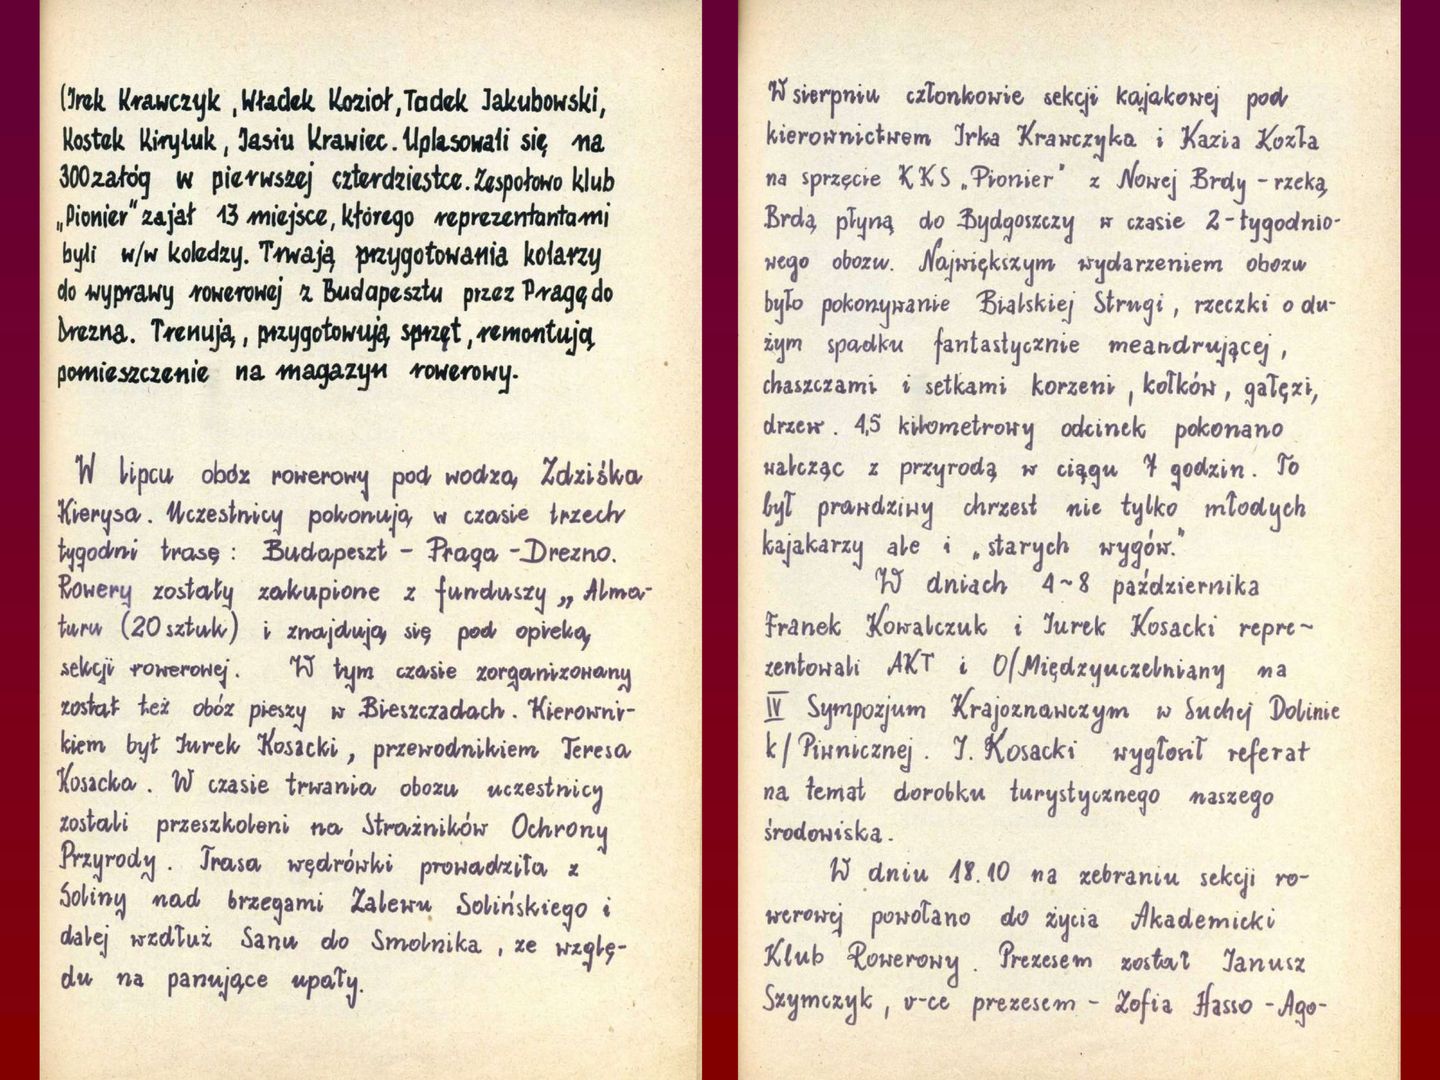 (Irek Krawczyk, Władek Kozioł, Tadek Jakubowski,
Kostek Kiryluk, Jasiu Krawiec. Uplasowali się na
300 załóg w pierwszej czterdziestce. Zespołowo klub
„Pionier" zajął 13 miejsce, którego reprezentantami
byli w/w koledzy. Trwają przygotowania kolarzy
do wyprawy rowerowej z Budapesztu przez Pragę do
Drezna. Trenują, przygotowują sprzęt, remontują
pomieszczenie na magazyn rowerowy.
W lipcu obóz rowerowy pod wodzą Zdziśka
Kierysa. Uczestnicy pokonują w czasie trzech
tygodni trasę: Budapeszt - Praga - Drezno.
Rowery zostały zakupione z funduszy „Alma-
turu (20 sztuk) i znajdują się pod opieką
sekcji rowerowej. W tym czasie zorganizowany
został też obóz pieszy w Bieszczadach. Kierowni-
kiem był Jurek Kosacki, przewodnikiem Teresa
Kosacka. W czasie trwania obozu uczestnicy
zostali przeszkoleni na Strażników Ochrony
Przyrody. Trasa wędrówki prowadziła z
Soliny nad brzegami Zalewu Solińskiego i
dalej wzdłuż Sanu do Smolnika, ze wzglę-
du na panujące upały.
W sierpniu członkowie sekcji kajakowej pod
kierownictwem Irka Krawczyka i Kazia Kozła
na sprzęcie KKS „Pionier" z Nowej Brdy - rzeką
Brdą płyną do Bydgoszczy w czasie 2-tygodnio-
wego obozu. Największym wydarzeniem obozu
było pokonywanie Bialskiej Strugi, rzeczki o du-
żym spadku fantastycznie meandrującej,
chaszczami i setkami korzeni, kołków, gałęzi,
drzew. 4,5 kilometrowy odcinek pokonano
walcząc z przyrodą w ciągu 7 godzin. To
był prawdziwy chrzest nie tylko młodych
kajakarzy ale i „starych wygów."
W dniach 4-8 października
Franek Kowalczuk i Jurek Kosacki repre-
zentowali AKT i O/Międzyuczelniany na
IV Sympozjum Krajoznawczym w Suchej Dolinie
k/Piwnicznej. J. Kosacki wygłosił referat
na temat dorobku turystycznego naszego
środowiska.
W dniu 18.10 na zebraniu sekcji ro-
werowej powołano do życia Akademicki
Klub Rowerowy. Prezesem został Janusz
Szymczyk, v-ce prezesem - Zofia Hasso - Ago-